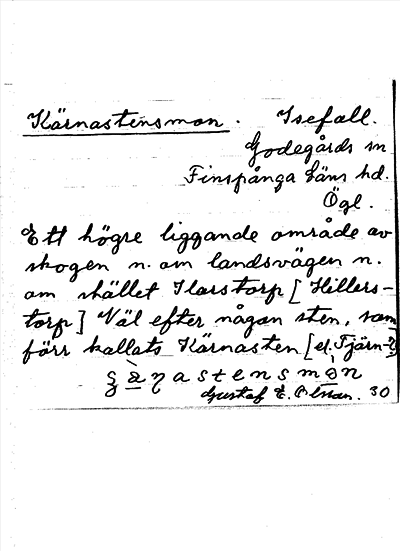 Kärnastensmon. Isefall.
Godegårds sn
Finspånga läns hd.
Ögl.
Ett högre liggande område av
skogen n. om landsvägen n.
om stället Ilarstorp [Hillers-
torp] Väl efter någon sten, som
förr kallats Kärnasten [el. Tjärn-?]
Gustaf E. 30